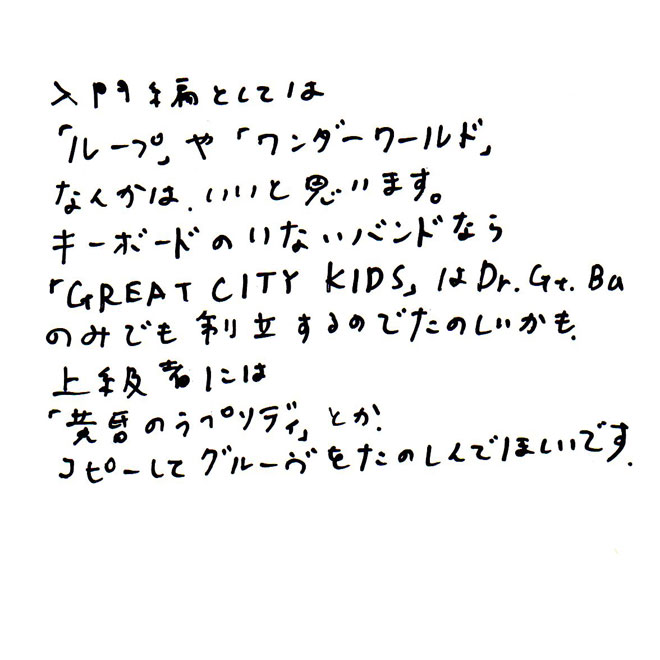 入門編としては
「ループ」や「ワンダーワールド」
なんかは、いいと思います。
キーボードのいないバンドなら
「GREAT CITY KIDS」はDr. Gt. Ba
のみでも制立するのでたのしいかも.
上級者には
「黄昏のラプソディ」とか.
コピーしてグルーヴをたのしんでほしいです.